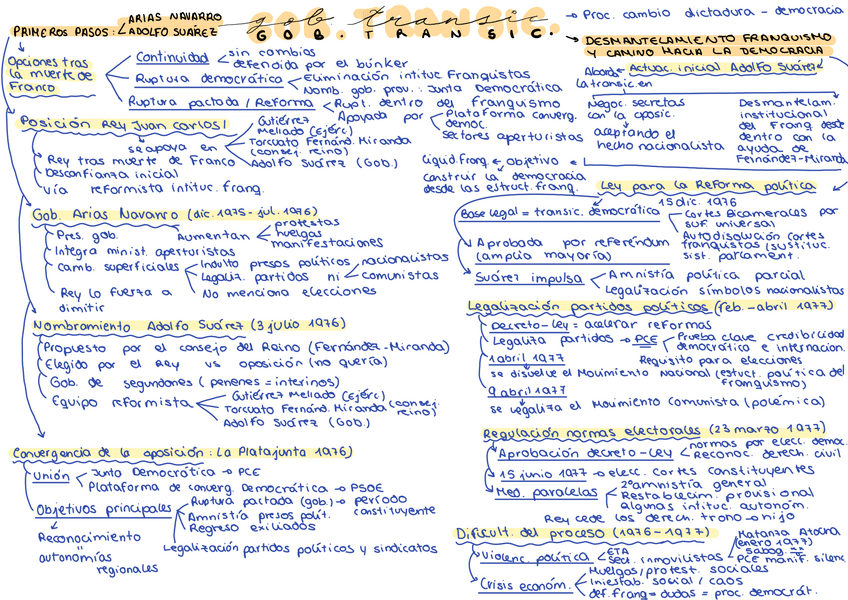 gob. transic.
GOB. TRANSIC.
PRIMEROS PASOS: ARIAS NAVARRO
ADOLFO SUÁREZ
Opciones tras
la muerte de
Franco
Continuidad
sin cambios
defendida por el búnker
Ruptura democrática
Eliminación intituc Franquistas
Nomb. gob. prov.. Junta Democrática
Ruptura pactada / Reforma
Rupt. dentro del franquismo
Apoyada por
Plataforma converg.
democ.
sectores aperturistas
Posición Rey Juan Carlos I
se apoya en
Gutiérrez
Mellado (Ejérc)
Torcuato Fernánd. Miranda
(consej. reino)
Adolfo Suárez (Gob.)
Rey tras muerte de Franco
Desconfianza inicial
vía reformista intituc. franq.
Gob. Arias Navarro (dic. 1975 - jul. 1976)
Pres. gob
Aumentan
protestas
huelgas
manifestaciones
Integra minist. aperturistas
camb. superficiales
Indulto presos políticos
Legaliz. partidos ni
nacionalistas
comunistas
No menciona elecciones
Rey lo fuerza a
dimitir
Nombramiento Adolfo Suárez (3 julio 1976)
Propuesto por el consejo del Reino (Fernández-Miranda)
Elegido por el Rey vs oposición (no quería)
Gob. de segundones (penenes = interinos)
Equipo reformista
Gutiérrez Mellado (Ejérc)
Torcuato Fernánd. Miranda (consej.
reino)
Adolfo Suárez (Gob.)
Convergencia de la oposición: La Platajunta 1976)
Unión
Junta Democrática → PCE
Plataforma de converg. Democrática → PSOE
Objetivos principales
Ruptura pactada (gob.) → período
constituyente
Amnistía presos polít.
Regreso exiliados
Legalización partidos políticos y sindicatos
Reconocimiento
"
autonomías
regionales
→ Proc. cambio dictadura - democracia
→ DESMANTELAMIENTO FRANQUISMO
Y CAMINO HACIA LA DEMOCRACIA
Aborda
la transic. en
Actuac. inicial Adolfo Suárez
Negoc. secretas
con la oposic.
aceptando el
hecho nacionalista
Desmantelam.
institucional
del Franq desde
dentro con la
ayuda de
Fernández-Miranda
Liquid. franq ← objetivo
construir la democracia
desde las estruct. franq.
Ley para la Reforma política
15 dic. 1976
Base legal = transic. democrática
Cortes Bicamerales por
suf. universal
Autodisolución cortes
franquistas (sustituc.
sist. parlament.
Aprobada por referéndum
(amplia mayoría)
Suárez impulsa
Amnistía política parcial
Legalización símbolos nacionalistas
Legalización partidos políticos (feb. - abril 1977)
Decreto-ley = acelerar reformas
Legaliza partidos → PCE
Prueba clave credibilidad
democrática e internacion.
Requisito para elecciones
1 abril 1977
se disuelve el Movimiento Nacional (estuct. política del
franquismo)
9 abril 1977
se legaliza el Movimiento comunista (polémica)
Regulación normas electorales (23 marzo 1977)
Aprobación decreto-ley
normas por elecc. democ.
Reconoc. derech. civil
15 junio 1977 → elecc. cortes constituyentes
Med. paralelas
2ª amnistía general
Restablecim. provisional
algunas intituc. autonóm.
Rey cede los derech. trono → hijo
Dificult. del proceso (1976 - 1977)
Violenc. política
ETA
Sect. inmovilistas
Matanza Atocha
(enero 1977)
PCE manif. silenc.
Crisis económ.
Huelgas/protest. sociales
Iniestab. social / caos
def. franq = dudas = proc. democrát.